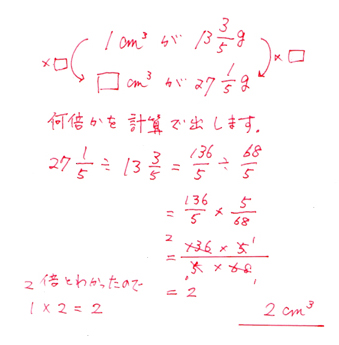 1 cm³ が 13 3/5 g
×□ ×□
□ cm³ が 27 1/5 g
何倍かを計算で出します。
27 1/5 ÷ 13 3/5 = 136/5 ÷ 68/5
= 136/5 × 5/68
= 136 × 5 / 5 × 68
2 1
1 1
= 2
2倍とわかったので
1 × 2 = 2
2 cm³